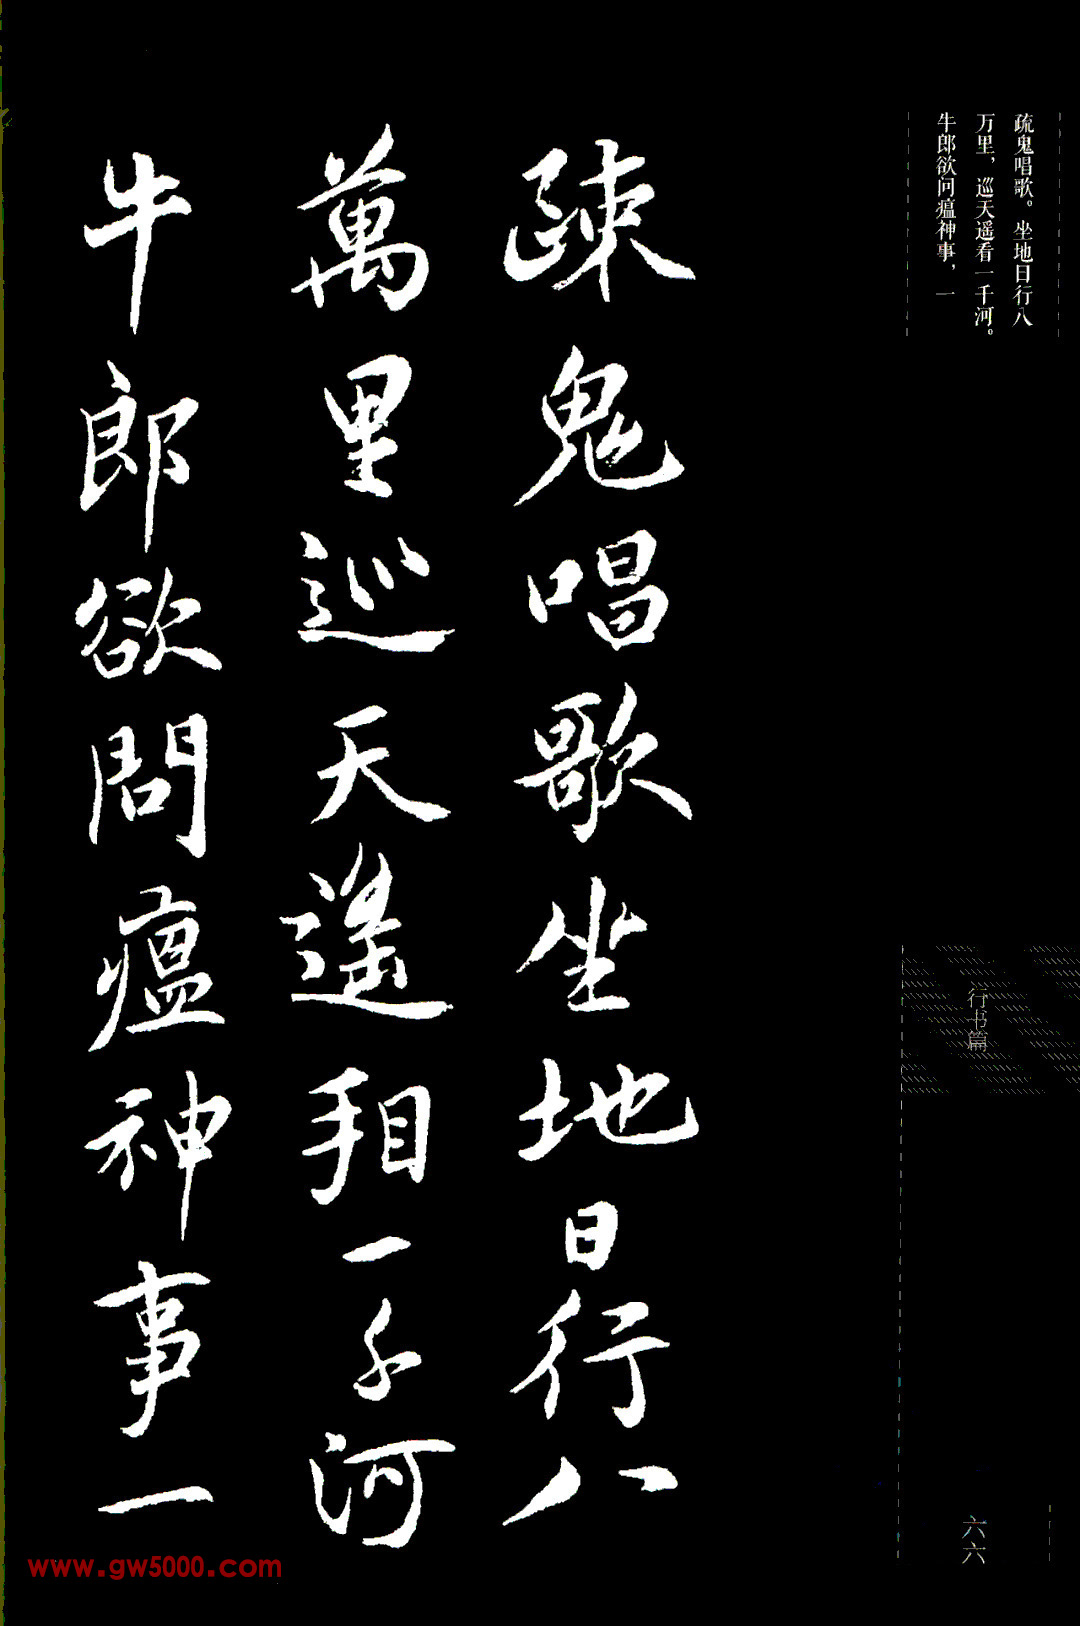 疏鬼唱歌。坐地日行八
万里，巡天遥看一千河。
牛郎欲问瘟神事，一
行书篇
六六
疎鬼唱歌坐地日行八
萬里巡天遙看一千河
牛郎欲問瘟神事一
www.gw5000.com